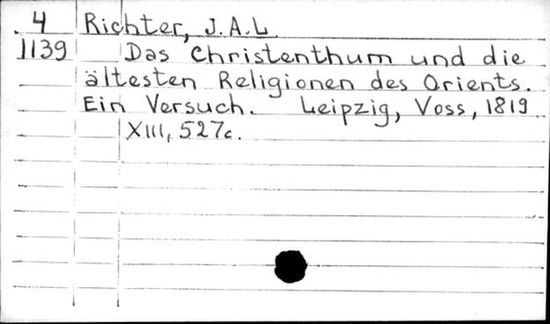 4 Richter, J.A.L.
1139 Das Christenthum und die
ältesten Religionen des Orients.
Ein Versuch. Leipzig, Voss, 1819
XIII, 527c.